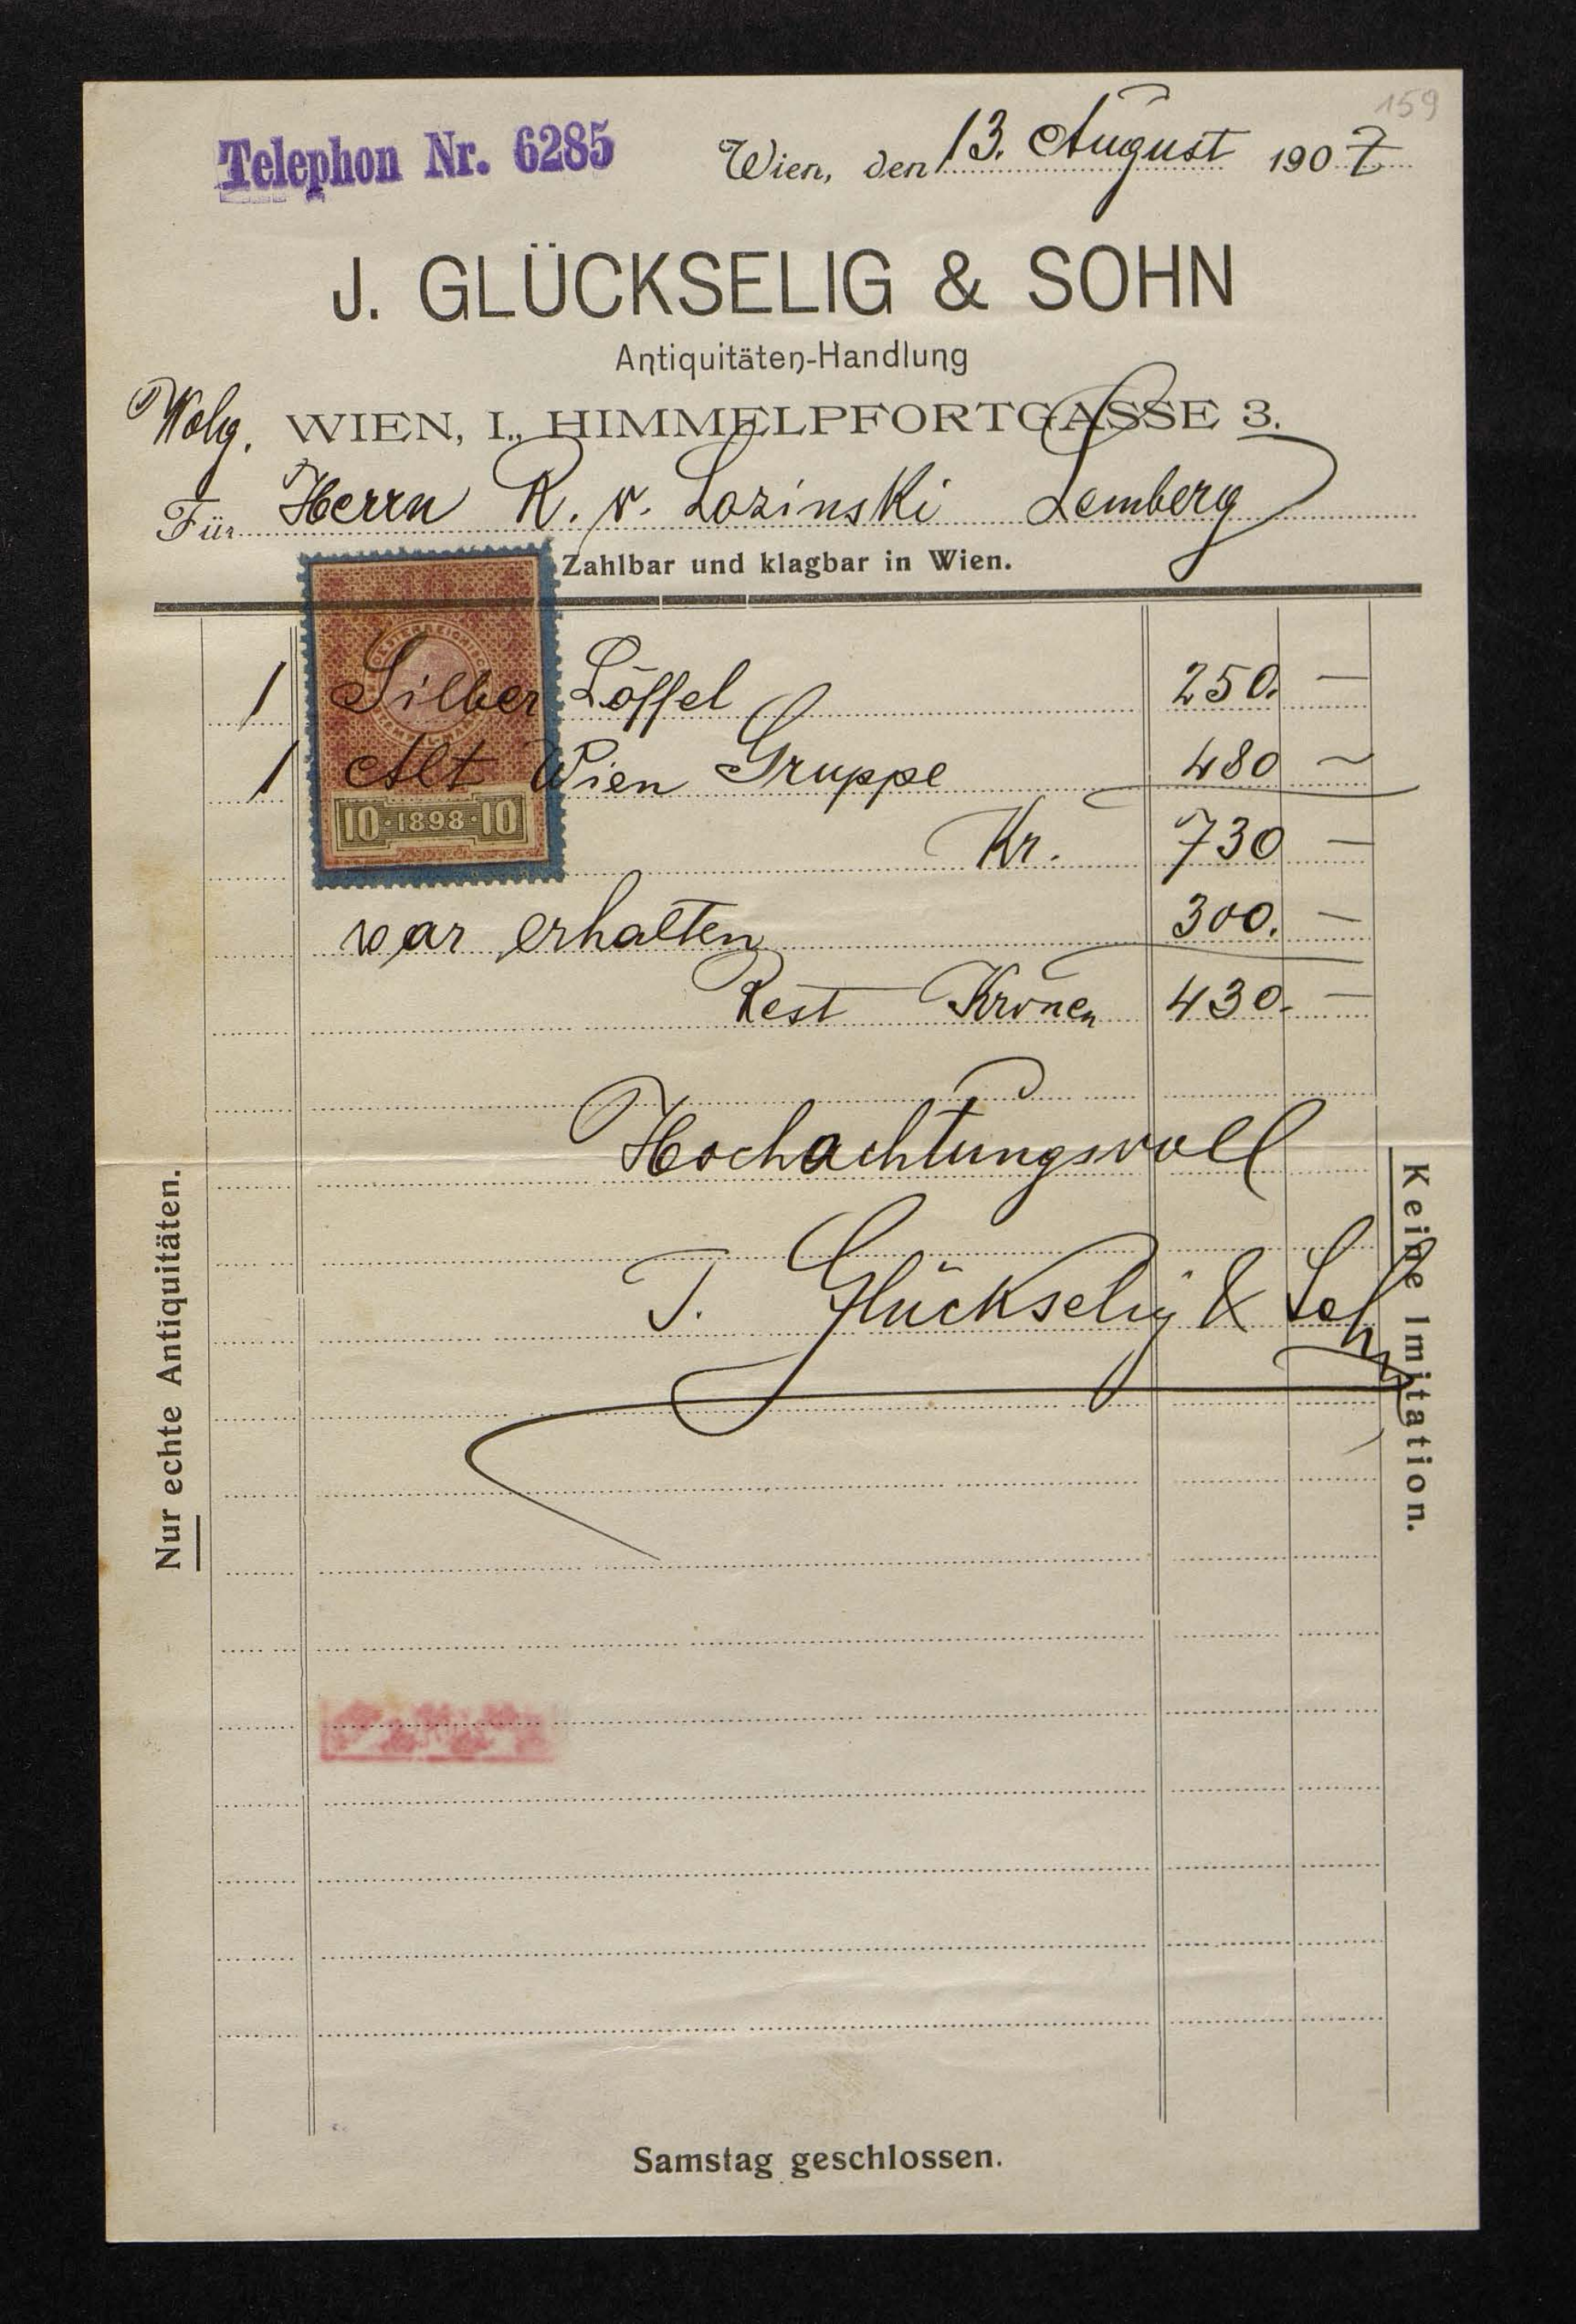 159
Telephon Nr. 6285
Wien, den 13. August 1907
J. GLÜCKSELIG & SOHN
Antiquitäten-Handlung
WIEN, I., HIMMELPFORTGASSE 3.
Für Herrn R. v. Lozinski Lemberg
Zahlbar und klagbar in Wien.
1 Silber Löffel 250. —
1 Alt Wien Gruppe 480 —
10·1898·10
Kr. 730 —
war erhalten 300. —
Rest Kronen 430. —
Hochachtungsvoll
J. Glückselig & Sohn
Nur echte Antiquitäten.
Keine Imitation.
Samstag geschlossen.